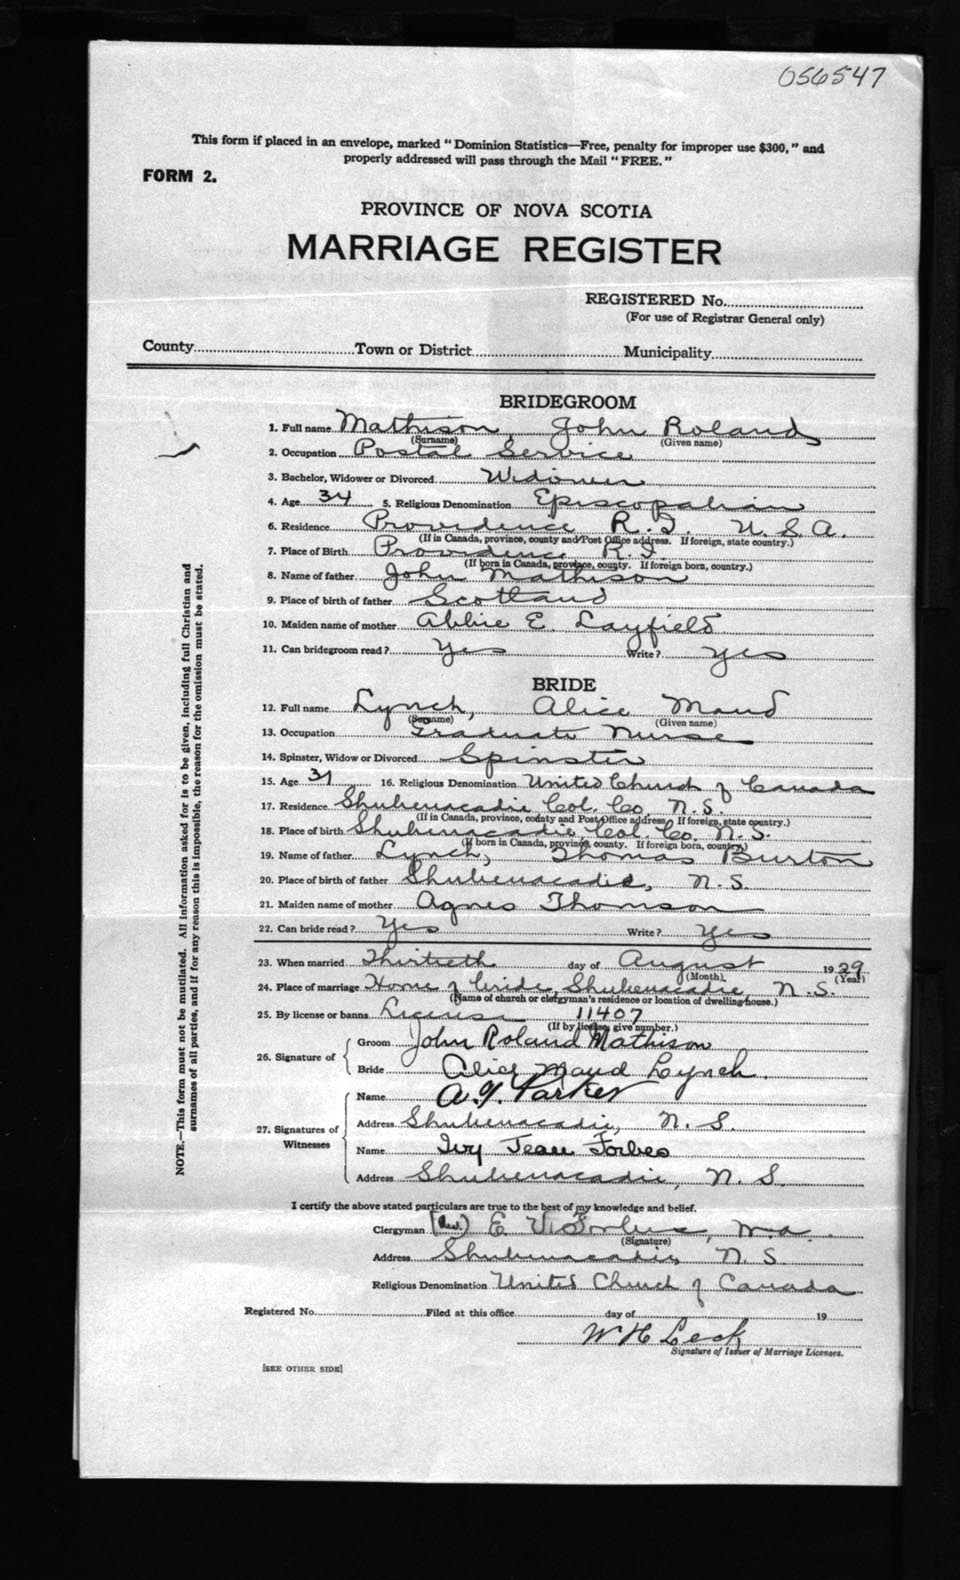 056547
This form if placed in an envelope, marked "Dominion Statistics—Free, penalty for improper use $300," and
properly addressed will pass through the Mail "FREE."
FORM 2.
PROVINCE OF NOVA SCOTIA
MARRIAGE REGISTER
REGISTERED No.
(For use of Registrar General only)
County Town or District Municipality
BRIDEGROOM
1. Full name Mathison, John Roland
(Surname) (Given name)
2. Occupation Postal Service
3. Bachelor, Widower or Divorced Widower
4. Age 34 5. Religious Denomination Episcopalian
6. Residence Providence R.I. U.S.A.
(If in Canada, province, county and Post Office address. If foreign, state country.)
7. Place of Birth Providence R.I.
(If born in Canada, province, county. If foreign born, country.)
8. Name of father John Mathison
9. Place of birth of father Scotland
10. Maiden name of mother Abbie E. Layfield
11. Can bridegroom read? Yes Write? Yes
BRIDE
12. Full name Lynch, Alice Maud
(Surname) (Given name)
13. Occupation Graduate Nurse
14. Spinster, Widow or Divorced Spinster
15. Age 31 16. Religious Denomination United Church of Canada
17. Residence Shubenacadie Col. Co. N.S.
(If in Canada, province, county and Post Office address. If foreign, state country.)
18. Place of birth Shubenacadie Col. Co. N.S.
(If born in Canada, province, county. If foreign born, country.)
19. Name of father Lynch, Thomas Burton
20. Place of birth of father Shubenacadie, N.S.
21. Maiden name of mother Agnes Thomson
22. Can bride read? Yes Write? Yes
23. When married Thirtieth day of August 1929
(Month) (Year)
24. Place of marriage Home of bride, Shubenacadie, N.S.
(Name of church or clergyman's residence or location of dwelling-house.)
25. By license or banns License 11407
(If by license, give number.)
26. Signature of Groom John Roland Mathison
Bride Alice Maud Lynch.
27. Signatures of Witnesses Name A. J. Parker
Address Shubenacadie, N.S.
Name Ivy Jean Forbes
Address Shubenacadie, N.S.
I certify the above stated particulars are true to the best of my knowledge and belief.
Clergyman (Rev.) E. V. Forbes, M.A.
(Signature)
Address Shubenacadie, N.S
Religious Denomination United Church of Canada
Registered No. Filed at this office day of 19
W H Leck
Signature of Issuer of Marriage Licenses.
[SEE OTHER SIDE]
NOTE.—This form must not be mutilated. All information asked for is to be given, including full Christian and
surnames of all parties, and if for any reason this is impossible, the reason for the omission must be stated.